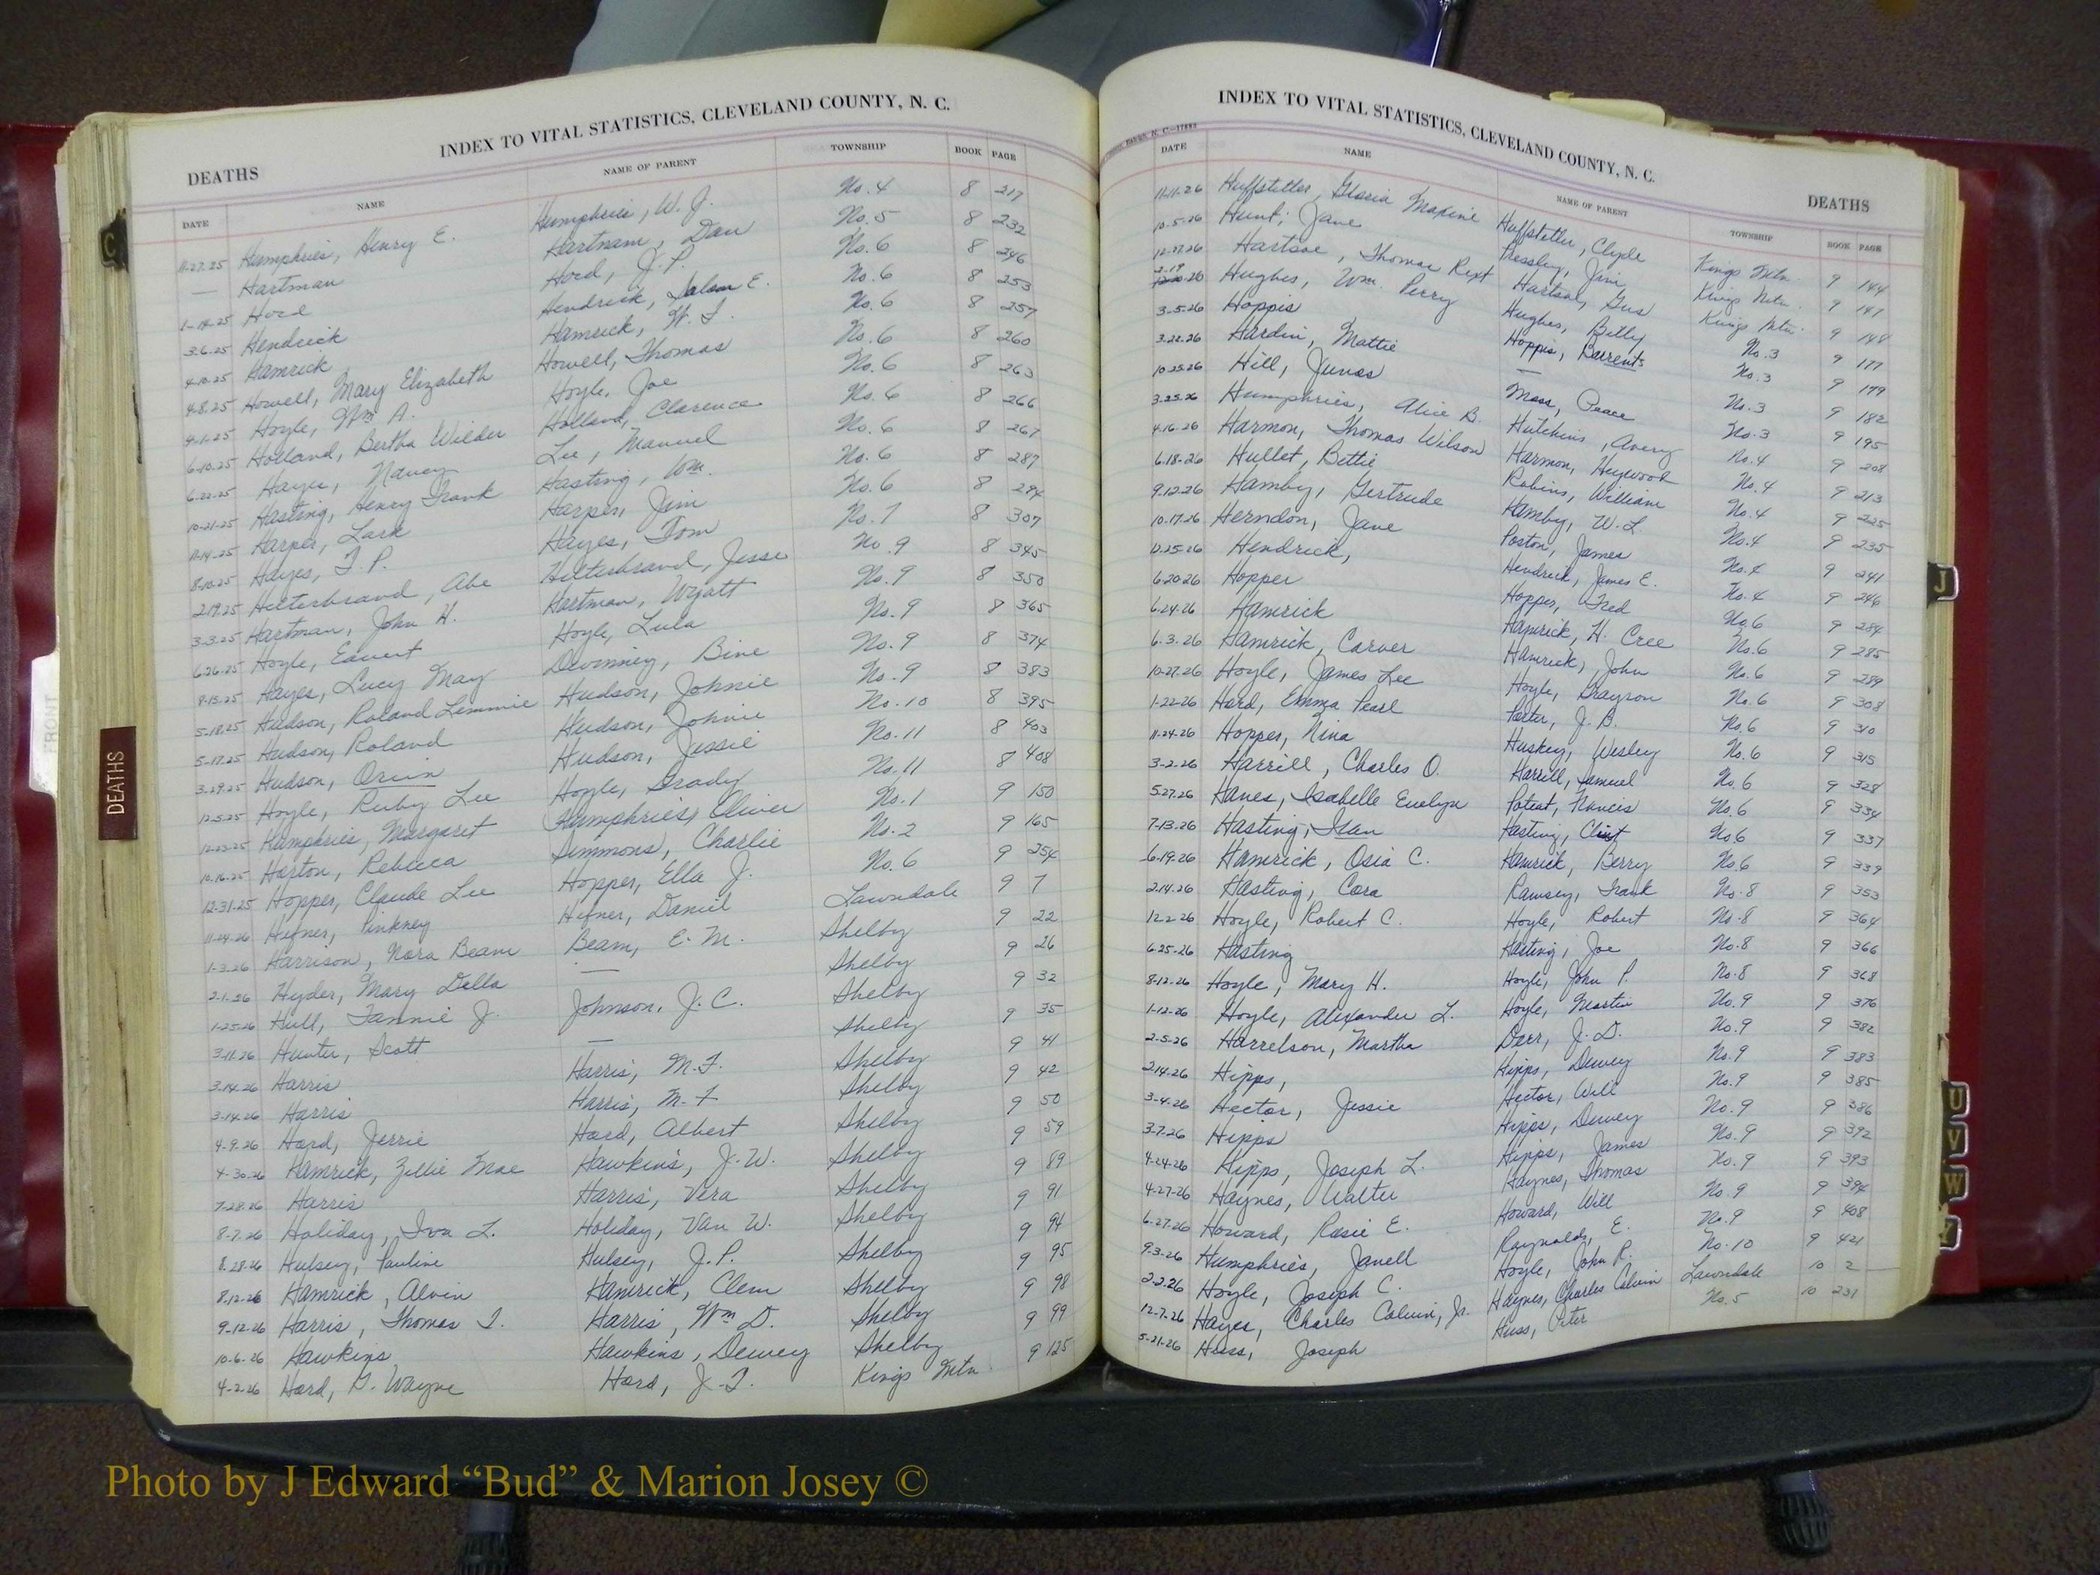 INDEX TO VITAL STATISTICS, CLEVELAND COUNTY, N. C.
DEATHS
DATE NAME NAME OF PARENT TOWNSHIP BOOK PAGE
11-27-25 Humphries, Henry E. Humphries, W. J. No. 4 8 217
— Hartman Hartman, Dan No. 5 8 232
1-14-25 Hord Hord, J. P. No. 6 8 246
3-6-25 Hendrick Hendrick, Salem E. No. 6 8 253
4-10-25 Hamrick Hamrick, W. T. No. 6 8 257
4-8-25 Howell, Mary Elizabeth Howell, Thomas No. 6 8 260
4-1-25 Hoyle, Wm A. Hoyle, Joe No. 6 8 263
6-10-25 Holland, Bertha Wilder Holland, Clarence No. 6 8 266
6-22-25 Hayes, Nancy Lee, Manuel No. 6 8 267
10-21-25 Hasting, Henry Frank Hasting, Wm. No. 6 8 287
11-14-25 Harper, Lark Harper, Jim No. 6 8 294
8-10-25 Hayes, T. P. Hayes, Tom No. 7 8 307
2-19-25 Hilterbrand, Abe Hilterbrand, Jesse No. 9 8 345
3-3-25 Hartman, John H. Hartman, Wyatt No. 9 8 350
6-26-25 Hoyle, Hoyle, Lula No. 9 8 365
8-13-25 Hayes, Lucy May Devinney, Bine No. 9 8 374
5-18-25 Hudson, Roland Lemmie Hudson, Johnie No. 9 8 383
5-17-25 Hudson, Roland Hudson, Johnie No. 10 8 395
3-29-25 Hudson, Orvin Hudson, Jessie No. 11 8 403
12-5-25 Hoyle, Ruby Lee Hoyle, Grady No. 11 8 408
12-23-25 Humphries, Margaret Humphries, Oliver No. 1 9 150
10-16-25 Horton, Rebecca Simmons, Charlie No. 2 9 165
12-31-25 Hopper, Claude Lee Hopper, Ella J. No. 6 9 254
11-24-26 Hefner, Pinkney Hefner, Daniel Lawndale 9 7
1-3-26 Harrison, Nora Beam Beam, E. M. Shelby 9 22
2-1-26 Hyder, Mary Della — Shelby 9 26
1-25-26 Hull, Fannie J. Johnson, J. C. Shelby 9 32
3-11-26 Hunter, Scott — Shelby 9 35
3-14-26 Harris Harris, M. F. Shelby 9 41
3-14-26 Harris Harris, M. F Shelby 9 42
4-9-26 Hord, Jerrie Hord, Albert Shelby 9 50
4-30-26 Hamrick, Zillie Mae Hawkins, J. W. Shelby 9 59
7-28-26 Harris Harris, Vera Shelby 9 89
8-7-26 Holiday, Iva L. Holiday, Van W. Shelby 9 91
8-28-26 Hulsey, Pauline Hulsey, J. P. Shelby 9 94
8-12-26 Hamrick, Alvin Hamrick, Clem Shelby 9 95
9-12-26 Harris, Thomas T. Harris, Wm D. Shelby 9 98
10-6-26 Hawkins Hawkins, Dewey Shelby 9 99
4-2-26 Hord, G. Wayne Hord, J. T. Kings Mtn 9 125
INDEX TO VITAL STATISTICS, CLEVELAND COUNTY, N. C.
DEATHS
DATE NAME NAME OF PARENT TOWNSHIP BOOK PAGE
11-11-26 Huffstetler, Gloria Maxine Huffstetler, Clyde Kings Mtn. 9 144
10-5-26 Hunt, Jane Pressley, Jim Kings Mtn. 9 141
12-27-26 Hartsoe, Thomas Rext Hartsoe, Gus Kings Mtn. 9 148
2-19 12-20-26 Hughes, Wm. Perry Hughes, Betty No. 3 9 177
3-5-26 Hoppis Hoppis, Barrents No. 3 9 179
3-22-26 Hardin, Mattie — No. 3 9 182
10-25-26 Hill, Junas Moss, Peace No. 3 9 195
3-25-26 Humphries, Alice B. Hutchins, Avery No. 4 9 208
4-16-26 Harmon, Thomas Wilson Harmon, Heywood No. 4 9 213
6-18-26 Hullet, Bettie Robins, William No. 4 9 225
9-12-26 Hamby, Gertrude Hamby, W. L. No. 4 9 235
10-17-26 Herndon, Jane Poston, James No. 4 9 241
11-25-26 Hendrick, Hendrick, James E. No. 4 9 246
6-20-26 Hopper Hopper, Fred No. 6 9 284
6-24-26 Hamrick Hamrick, H. Cree No. 6 9 285
6-3-26 Hamrick, Carver Hamrick, John No. 6 9 289
10-27-26 Hoyle, James Lee Hoyle, Grayson No. 6 9 308
1-22-26 Hord, Emma Pearl Porter, J. B. No. 6 9 310
11-24-26 Hopper, Nina Huskey, Wesley No. 6 9 315
3-2-26 Harrill, Charles O. Harrill, Samuel No. 6 9 328
5-27-26 Hanes, Isabelle Evelyn Poteat, Francis No. 6 9 334
7-13-26 Hasting, Ivan Hasting, Clint No. 6 9 337
6-19-26 Hamrick, Osia C. Hamrick, Berry No. 6 9 339
2-14-26 Hasting, Cora Ramsey, Frank No. 8 9 353
12-2-26 Hoyle, Robert C. Hoyle, Robert No. 8 9 364
6-25-26 Hasting Hasting, Joe No. 8 9 366
8-12-26 Hoyle, Mary H. Hoyle, John P. No. 8 9 368
1-12-26 Hoyle, Alexander L. Hoyle, Martin No. 9 9 376
2-5-26 Harrelson, Martha Darr, J. D. No. 9 9 382
2-14-26 Hipps, Hipps, Dewey No. 9 9 383
3-4-26 Hector, Jessie Hector, Will No. 9 9 385
3-7-26 Hipps Hipps, Dewey No. 9 9 386
4-24-26 Hipps, Joseph L. Hipps, James No. 9 9 392
4-27-26 Haynes, Walter Haynes, Thomas No. 9 9 393
6-27-26 Howard, Rosie E. Howard, Will No. 9 9 394
9-3-26 Humphries, Janell Raynolds, E. No. 9 9 408
2-2-26 Hoyle, Joseph C. Hoyle, John R. No. 10 9 421
12-7-26 Hayes, Charles Calvin, Jr. Haynes, Charles Calvin Lawndale 10 2
5-21-26 Huss, Joseph Huss, Peter No. 5 10 231
C
FRONT
DEATHS
J
U
V
W
Photo by J Edward “Bud” & Marion Josey ©